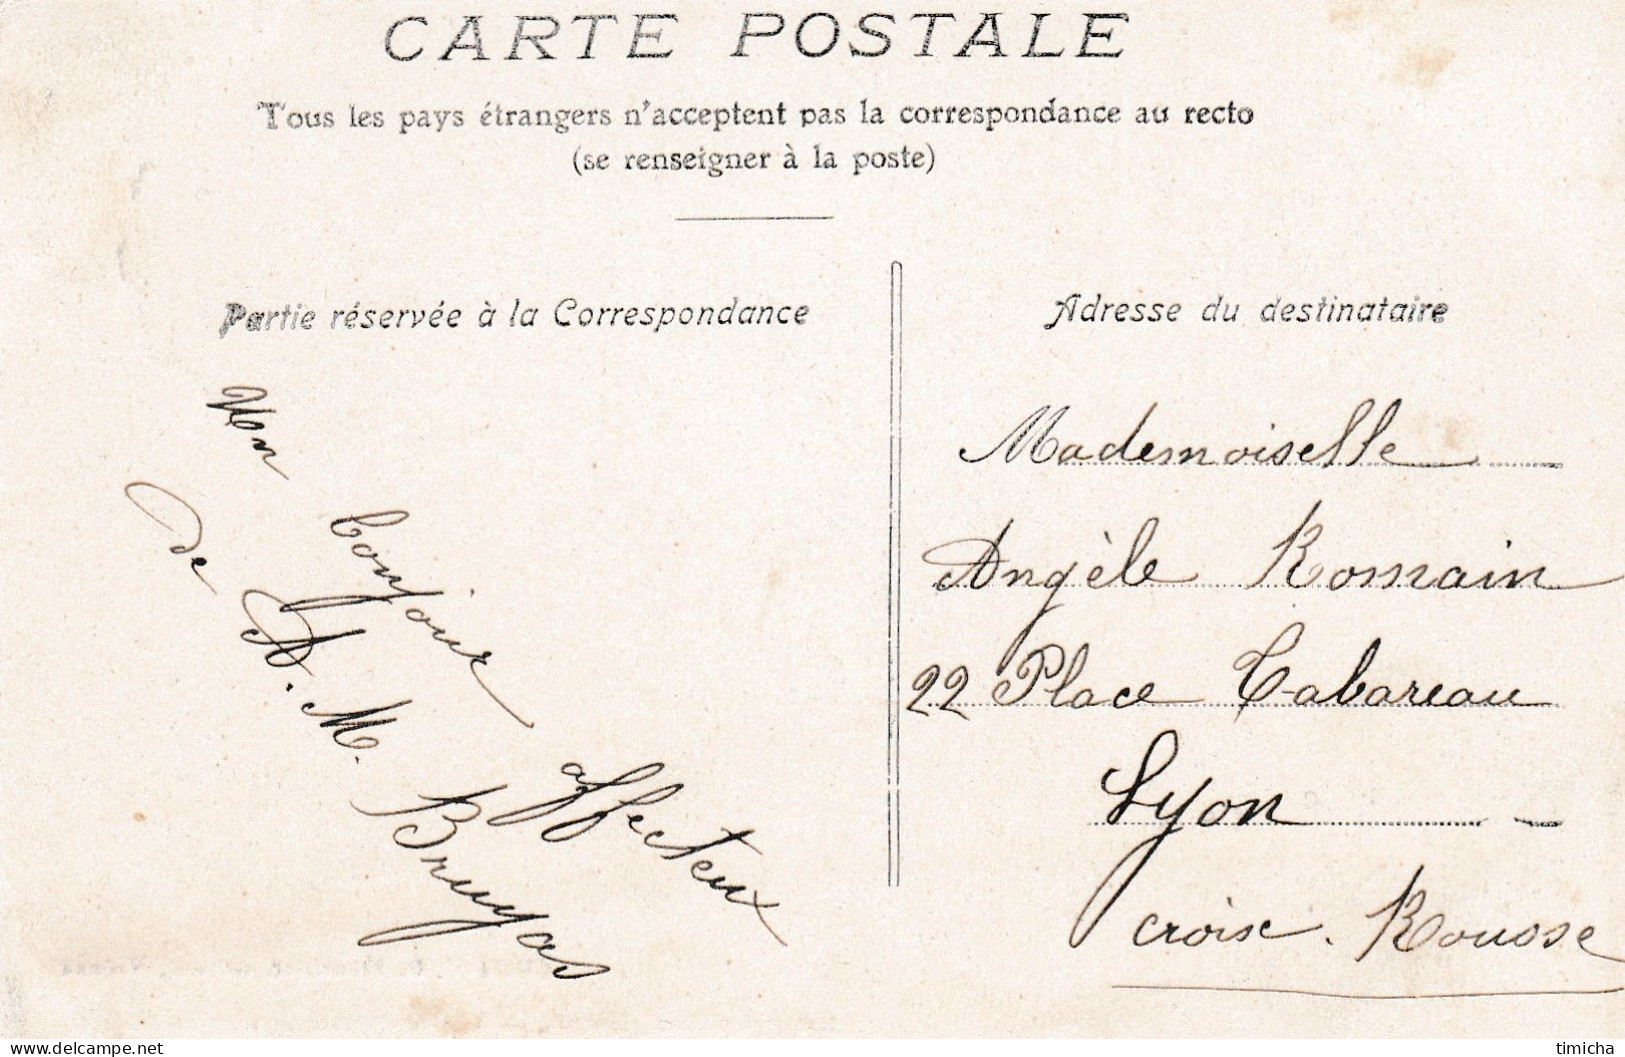 CARTE POSTALE
Tous les pays étrangers n'acceptent pas la correspondance au recto
(se renseigner à la poste)
Partie réservée à la Correspondance
Un bonjour affecteux
de A. M. Bruyas
Adresse du destinataire
Mademoiselle
Angèle Romain
22 Place Tabareau
Lyon
croix. Rousse
delcampe.net
timicha